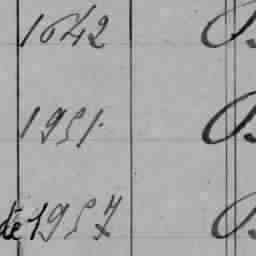 1642
1951
dé 1957